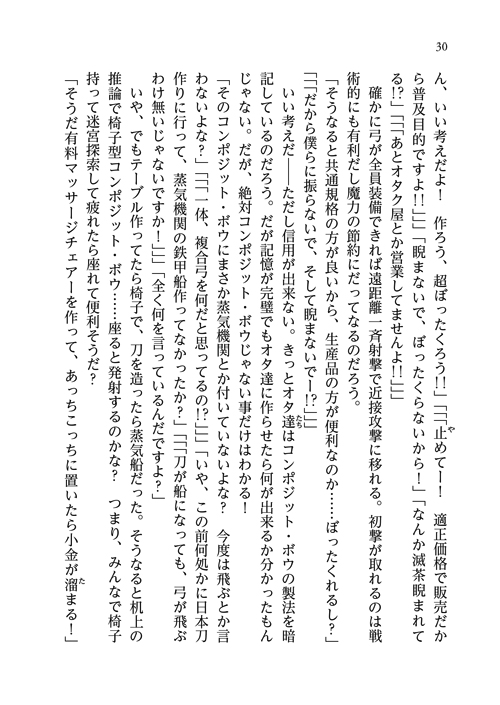 30
ん、いい考えだよ！　作ろう、超ぼったくろう!!」「「「止めてー！　適正価格で販売だか
ら普及目的ですよ!!」」」「睨まないで、ぼったくらないから！」「なんか滅茶睨まれて
る!?」「「「あとオタク屋とか営業してませんよ!!」」」
　確かに弓が全員装備できれば遠距離一斉射撃で近接攻撃に移れる。初撃が取れるのは戦
術的にも有利だし魔力の節約にだってなるのだろう。
「そうなると共通規格の方が良いから、生産品の方が便利なのか……ぼったくれるし？」
「「「だから僕らに振らないで、そして睨まないでー!?」」」
　いい考えだ――ただし信用が出来ない。きっとオタ達はコンポジット・ボウの製法を暗
記しているのだろう。だが記憶が完璧でもオタ達に作らせたら何が出来るか分かったもん
じゃない。だが、絶対コンポジット・ボウじゃない事だけはわかる！
「そのコンポジット・ボウにまさか蒸気機関とか付いていないよな？　今度は飛ぶとか言
わないよな？」「「「一体、複合弓を何だと思ってるの!?」」」「いや、この前何処かに日本刀
作りに行って、蒸気機関の鉄甲船作ってなかったか？」「「「刀が船になっても、弓が飛ぶ
わけ無いじゃないですか！」」」「全く何を言っているんだですよ？」
　いや、でもテーブル作ってたら椅子で、刀を造ったら蒸気船だった。そうなると机上の
推論で椅子型コンポジット・ボウ……座ると発射するのかな？　つまり、みんなで椅子
持って迷宮探索して疲れたら座れて便利そうだ？
「そうだ有料マッサージチェアーを作って、あっちこっちに置いたら小金が溜まる！」